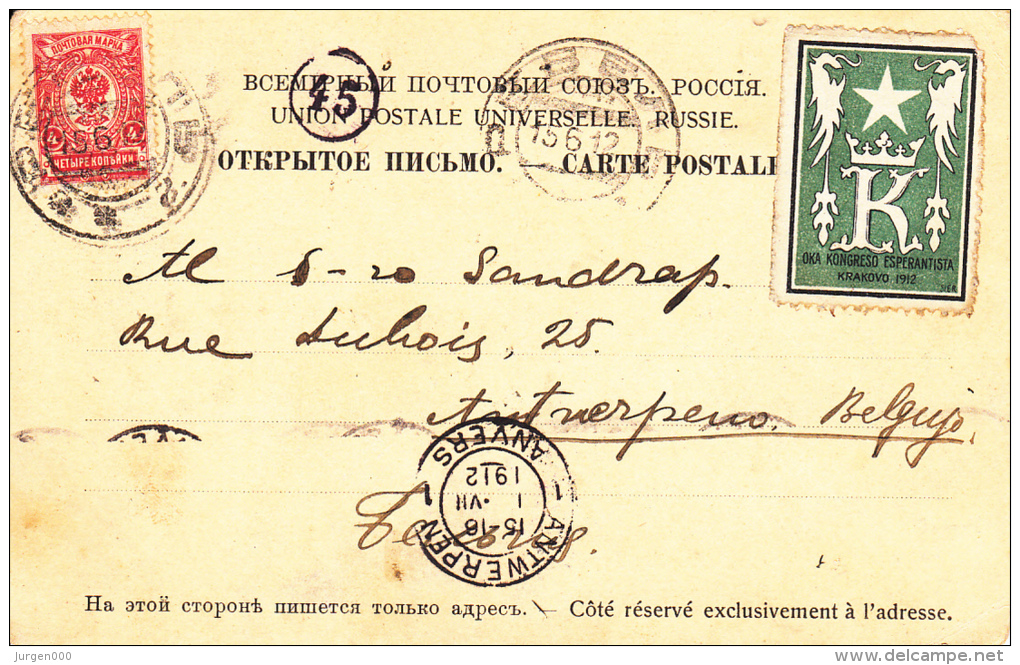 ПОЧТОВАЯ МАРКА
4 4
ЧЕТЫРЕ КОПѢЙКИ
15 6
45
15 6 12
ВСЕМІРНЫЙ ПОЧТОВЫЙ СОЮЗЪ. РОССІЯ.
UNION POSTALE UNIVERSELLE. RUSSIE.
ОТКРЫТОЕ ПИСЬМО. — CARTE POSTALE
K
OKA KONGRESO ESPERANTISTA
KRAKOVO 1912
Al S-ro Sandrap.
Rue Dubois, 25.
Antverpeno. Belgujo.
ANTWERPEN 1
ANVERS 1
15-16
1 ·VII
1912
На этой сторонѣ пишется только адресъ. — Côté réservé exclusivement à l'adresse.
jurgen000
www.delcampe.net